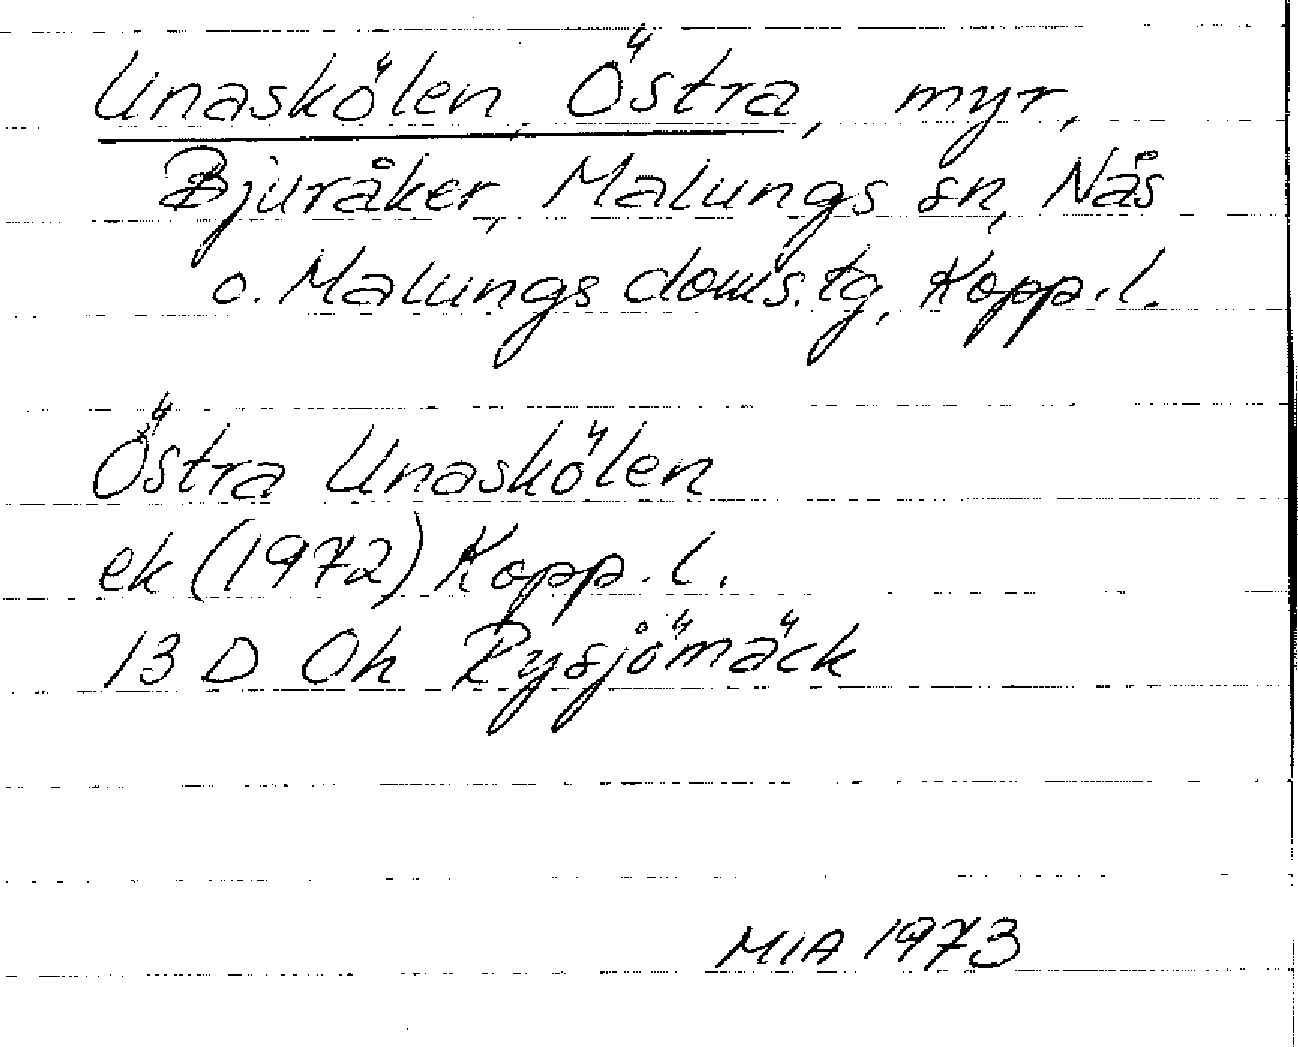 Unaskölen, Östra, myr,
Bjuråker, Malungs sn, Nås
o. Malungs doms.tg, Kopp.l.
Östra Unaskölen
ek (1972) Kopp.l.
13 D Oh Rysjömäck
MIA 1973